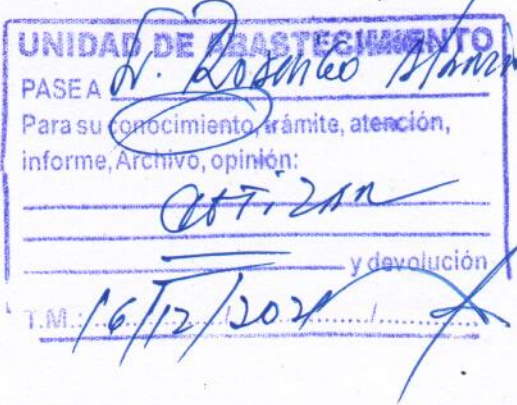 UNIDAD DE ABASTECIMIENTO
PASE A Sr. Rosenleo
Para su conocimiento, trámite, atención,
informe, Archivo, opinión:
COTIZAR
y devolución
T.M.: 16/12/2021